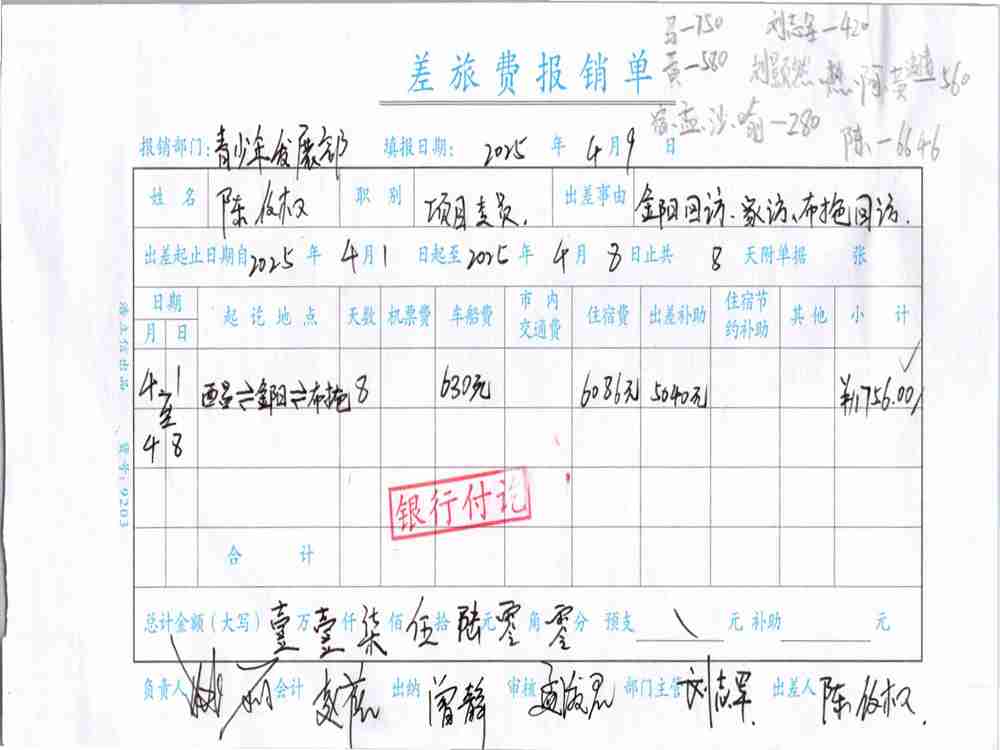 吕—750 刘志军—420
差旅费报销单
黄—580 560
—280
陈—6646
报销部门: 青少年发展部 填报日期: 2025 年 4 月 9 日
姓名 陈 权 职别 项目专员. 出差事由 金阳回访、家访、布拖回访.
出差起止日期自 2025 年 4 月 1 日起至 2025 年 4 月 8 日止共 8 天附单据 张
日期 起讫地点 天数 机票费 车船费 市内交通费 住宿费 出差补助 住宿节约补助 其他 小计
月 日
4 1 西昌⇌金阳⇌布拖 8 630元 6086元 5040元 ¥11756.00
至
4 8
银行付讫
合计
总计金额(大写) 壹万壹仟柒佰伍拾陆元零角零分 预支 元 补助 元
负责人 会计 出纳 曾静 审核 部门主管 刘志军. 出差人 陈 权.
货号:9203